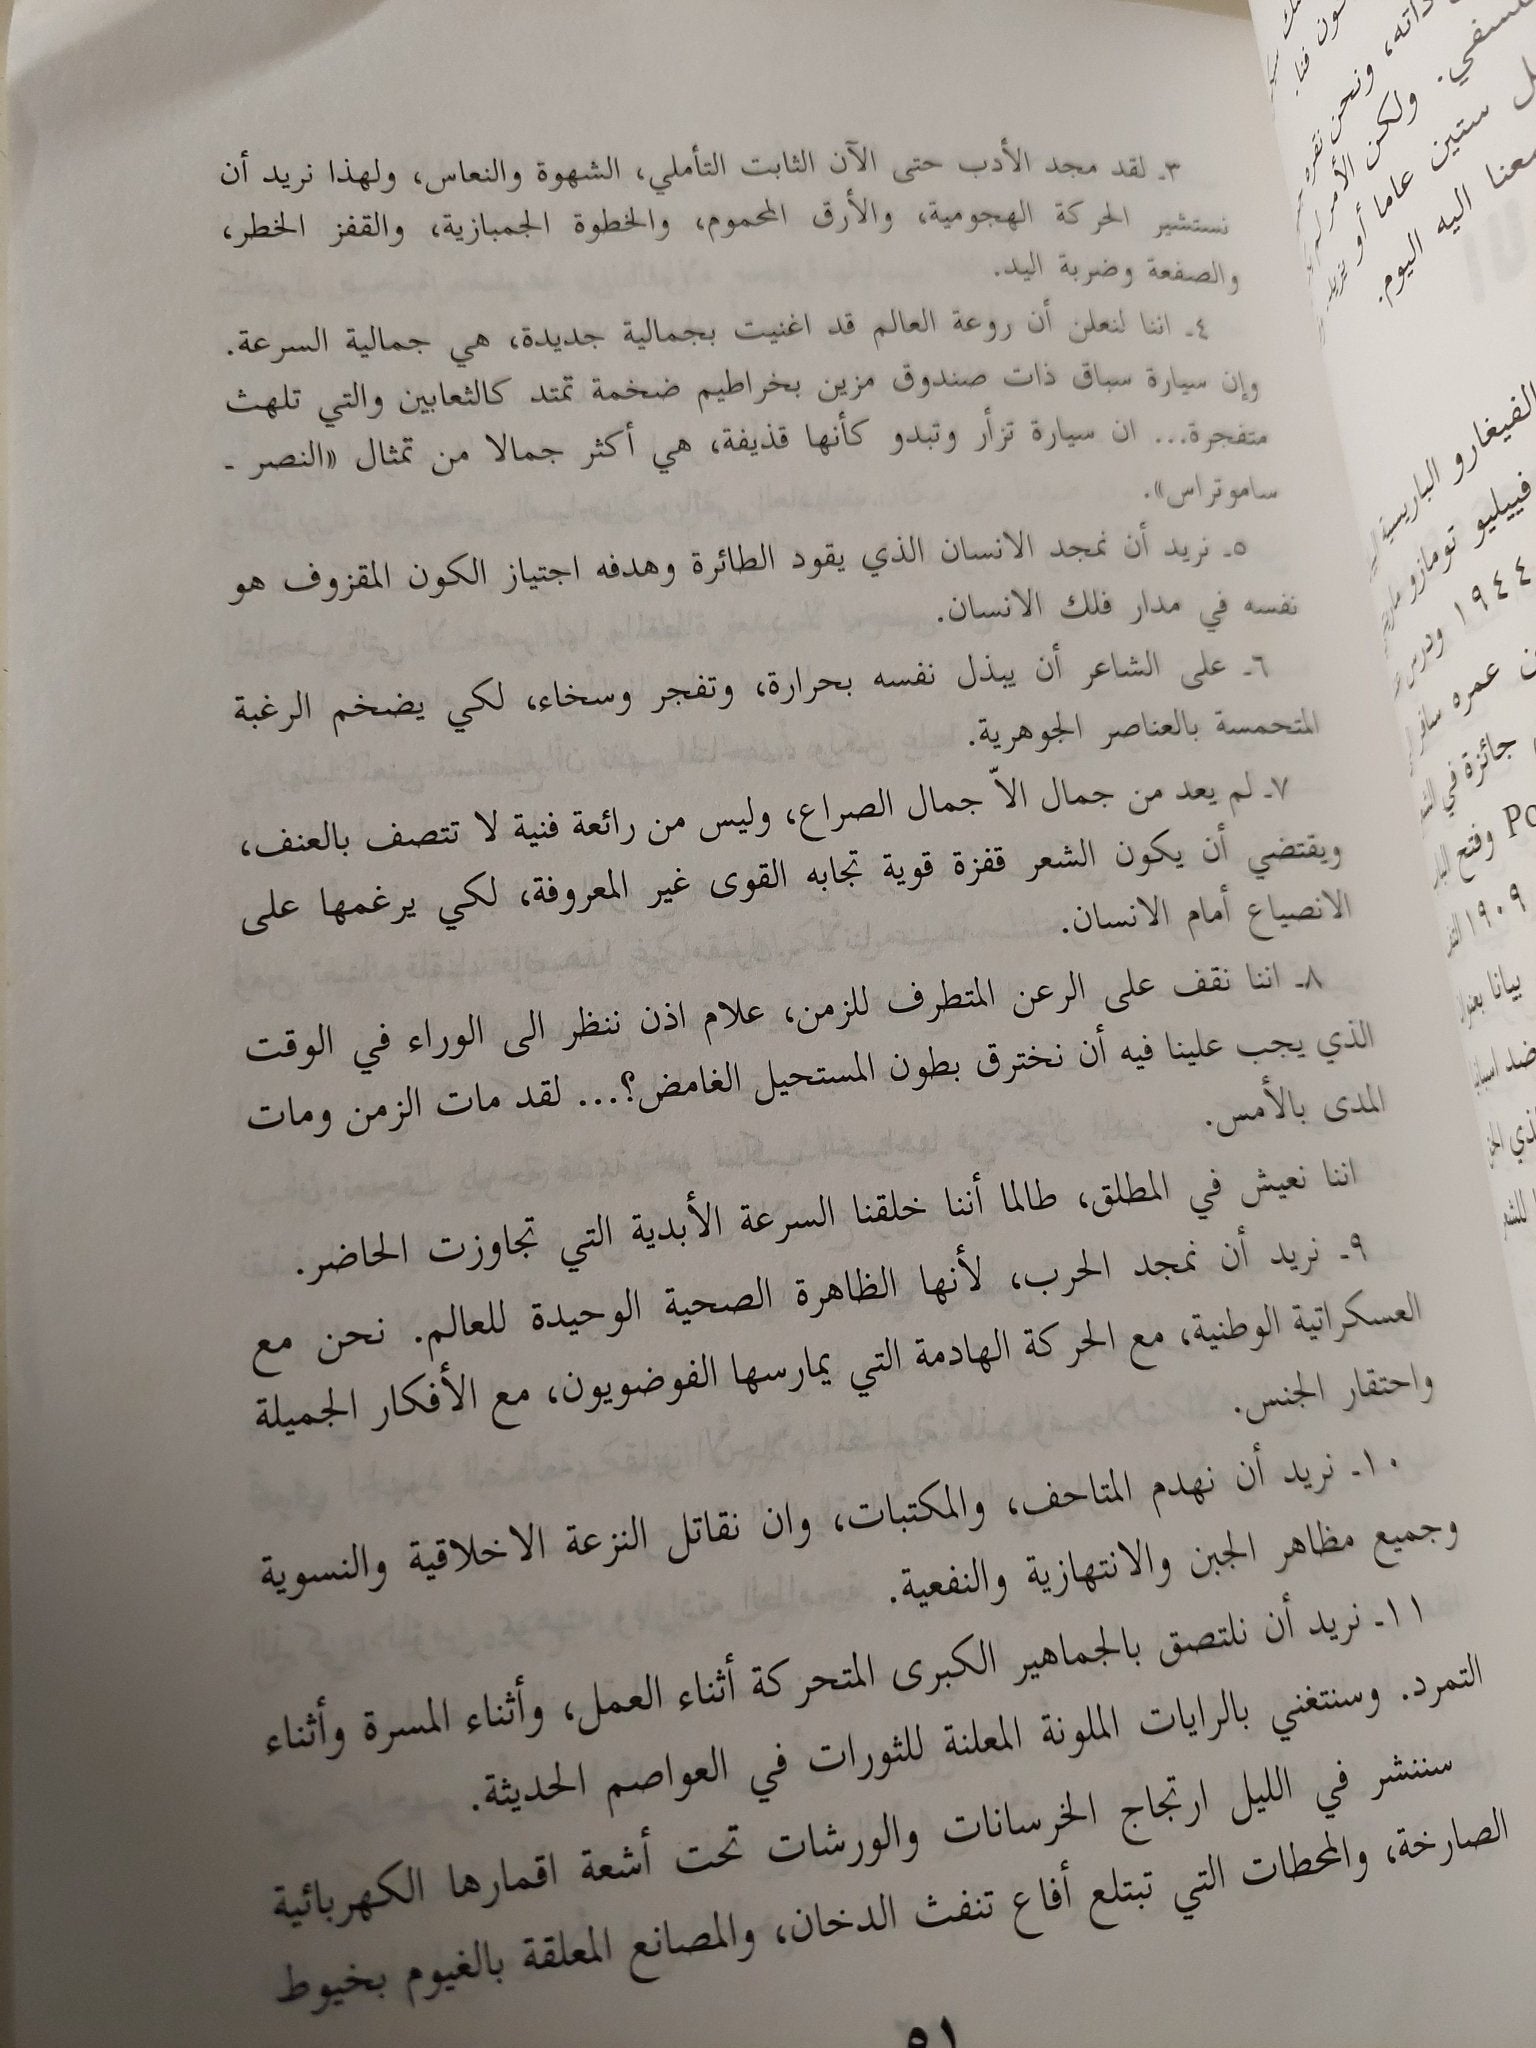 ٣ـ لقد مجد الأدب حتى الآن الثابت التأملي، الشهوة والنعاس، ولهذا نريد أن
نستشير الحركة الهجومية، والأرق المحموم، والخطوة الجمبازية، والقفز الخطر،
والصفعة وضربة اليد.
٤ـ اننا لنعلن أن روعة العالم قد اغنيت بجمالية جديدة، هي جمالية السرعة.
وإن سيارة سباق ذات صندوق مزين بخراطيم ضخمة تمتد كالثعابين والتي تلهث
متفجرة... ان سيارة تزأر وتبدو كأنها قذيفة، هي أكثر جمالا من تمثال «النصر ـ
ساموتراس».
٥ـ نريد أن نمجد الانسان الذي يقود الطائرة وهدفه اجتياز الكون المقزوف هو
نفسه في مدار فلك الانسان.
٦ـ على الشاعر أن يبذل نفسه بحرارة، وتفجر وسخاء، لكي يضخم الرغبة
المتحمسة بالعناصر الجوهرية.
٧ـ لم يعد من جمال الاّ جمال الصراع، وليس من رائعة فنية لا تتصف بالعنف،
ويقتضي أن يكون الشعر قفزة قوية تجابه القوى غير المعروفة، لكي يرغمها على
الانصياع أمام الانسان.
٨ـ اننا نقف على الرعن المتطرف للزمن، علام اذن ننظر الى الوراء في الوقت
الذي يجب علينا فيه أن نخترق بطون المستحيل الغامض؟... لقد مات الزمن ومات
المدى بالأمس.
اننا نعيش في المطلق، طالما أننا خلقنا السرعة الأبدية التي تجاوزت الحاضر.
٩ـ نريد أن نمجد الحرب، لأنها الظاهرة الصحية الوحيدة للعالم. نحن مع
العسكراتية الوطنية، مع الحركة الهادمة التي يمارسها الفوضويون، مع الأفكار الجميلة
واحتقار الجنس.
١٠ـ نريد أن نهدم المتاحف، والمكتبات، وان نقاتل النزعة الاخلاقية والنسوية
وجميع مظاهر الجبن والانتهازية والنفعية.
١١ـ نريد أن نلتصق بالجماهير الكبرى المتحركة أثناء العمل، وأثناء المسرة وأثناء
التمرد. وسنتغني بالرايات الملونة المعلنة للثورات في العواصم الحديثة.
سننشر في الليل ارتجاج الخرسانات والورشات تحت أشعة اقمارها الكهربائية
الصارخة، والمحطات التي تبتلع أفاع تنفث الدخان، والمصانع المعلقة بالغيوم بخيوط
٥١
ذاته، ونحن نقره
ولكن الأمر لم
ستين عاما أو يزيد
اليه اليوم.
الفيغارو الباريسية
فييليو تومازو
١٩٤٤ ودرس
عمره سافر
جائزة في
Po وفتح
١٩٠٩
بيانا بعنوان
ضد